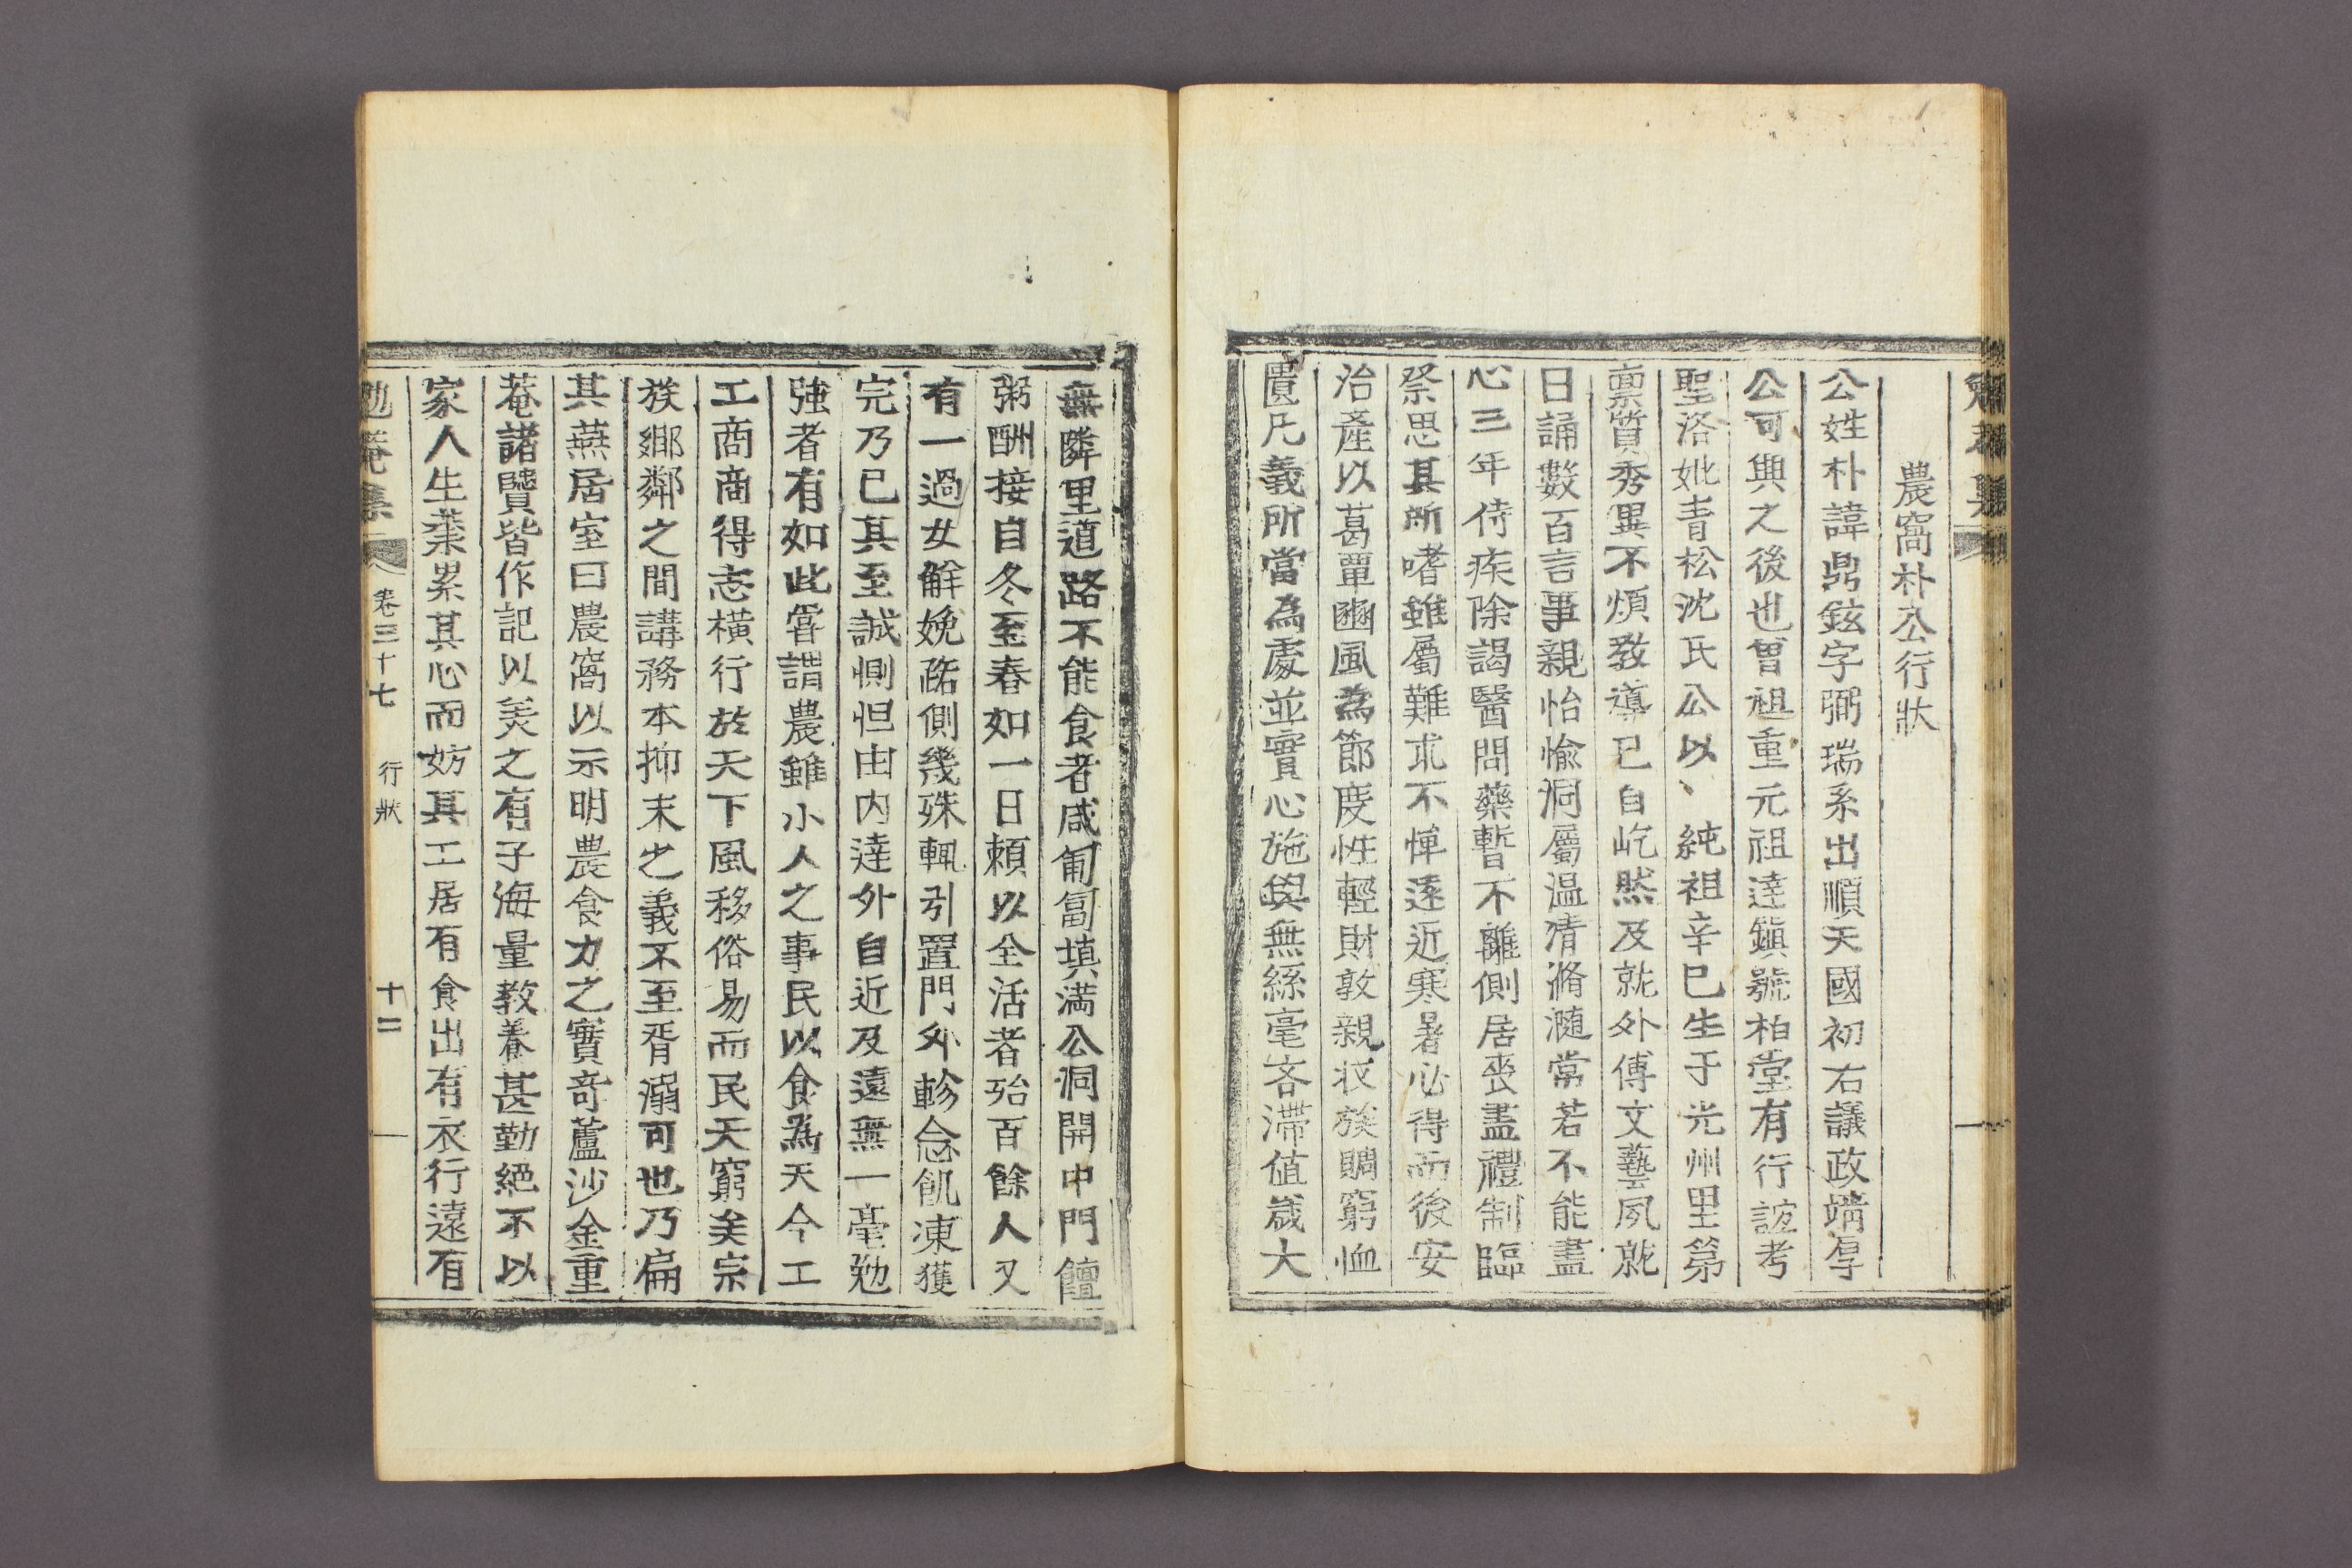 農窩朴公行狀
公姓朴諱鼎鉉字弼瑞系出順天國初右議政靖厚
公可興之後也曾祖重元祖達鎭號栢堂有行誼考
聖洛妣靑松沈氏公以純祖辛巳生于光州里第
禀質秀異不煩敎導已自屹然及就外傅文藝夙就
日誦數百言事親怡愉洞屬温凊滫瀡常若不能盡
心三年侍疾除謁醫問藥暫不離側居喪盡禮制臨
祭思其所嗜雖屬難求不憚遠近寒暑必得而後安
治產以葛覃豳風為節度性輕財敦親戚族賙窮恤
匱凡義所當為處並實心施與無絲毫吝滯値歲大
無隣里道路不能食者咸匍匐填満公洞開中門饘
粥酬接自冬至春如一日賴以全活者殆百餘人又
有一過女觧娩路側幾殊輒引置門外軫念飢凍獲
完乃已其至誠惻怛由内達外自近及遠無一毫勉
強者有如此甞謂農雖小人之事民以食為天今工
工商商得志橫行於天下風移俗易而民天窮矣宗
族鄉鄰之間講務本抑末之義不至胥溺可也乃扁
其燕居室曰農窩以示明農食力之實奇蘆沙金重
菴諸贒皆作記以美之有子海量教養甚勤絕不以
家人生業累其心而妨其工居有食出有衣行遠有
勉菴集 卷三十七 行狀 十二